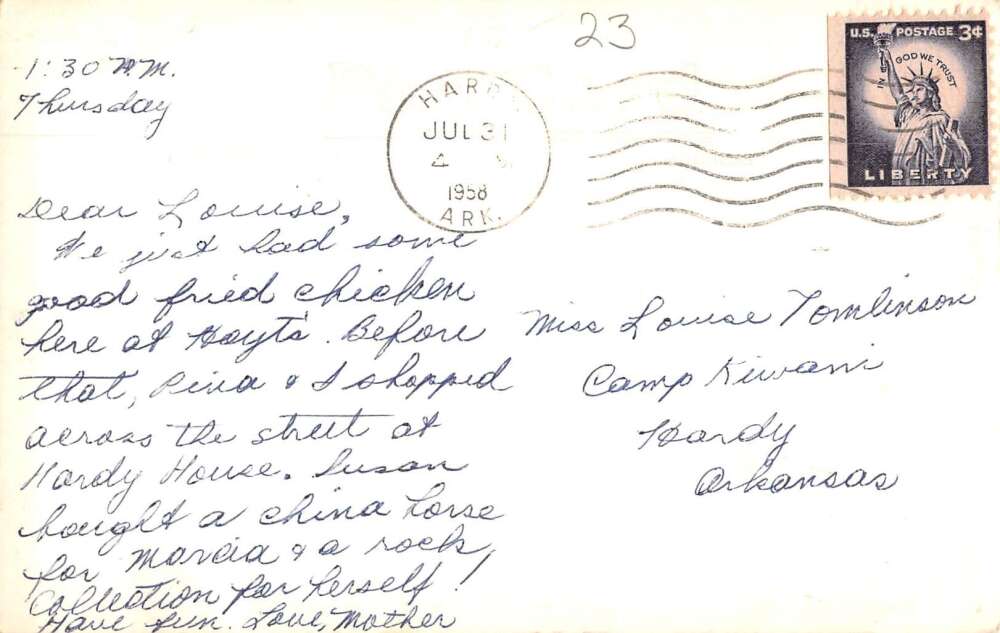 23
U.S. POSTAGE 3¢
IN GOD WE TRUST
LIBERTY
HARDY
JUL 31
4
1958
ARK.
1:30 P.M.
Thursday
Dear Louise,
We just had some
good fried chicken
here at Hoyt's. Before
that, & I shopped
across the street at
Hardy House. Susan
bought a china horse
for Marcia & a rock
Collection for herself!
Have fun. Love, Mother
Miss Louise Tomlinson
Camp Kiwani
Hardy
Arkansas